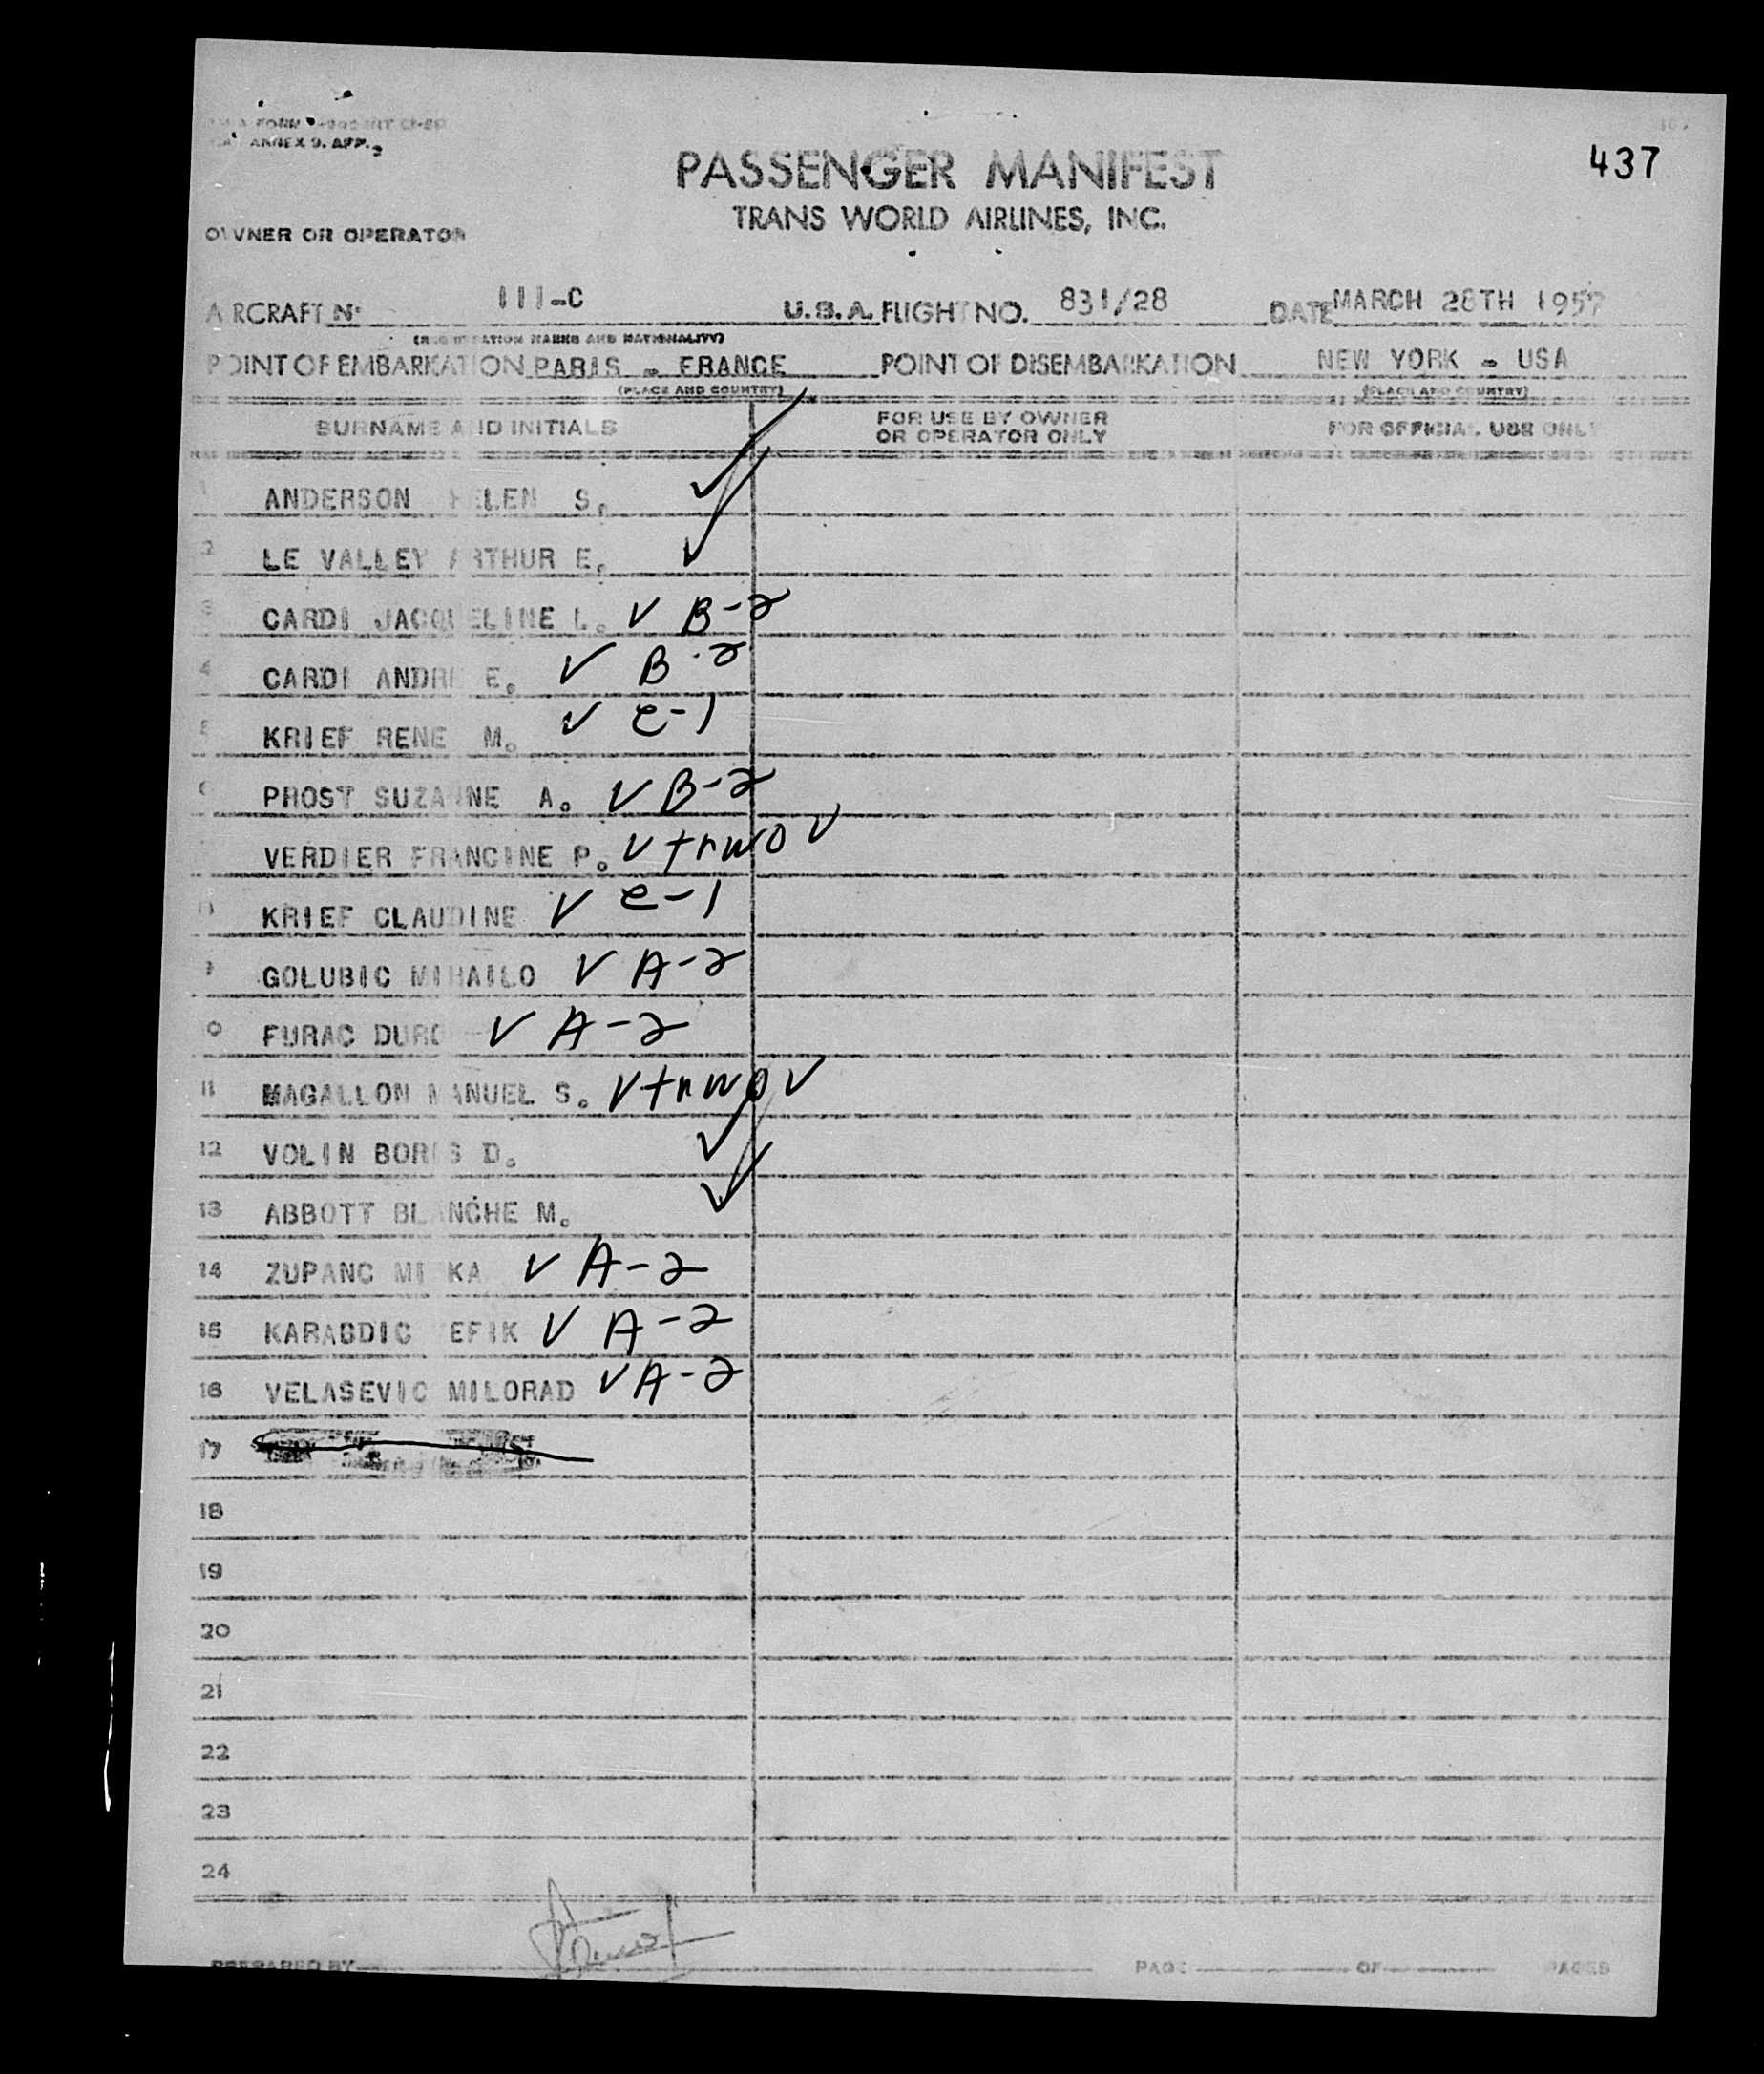 437
ANNEX 9. APP. 2
PASSENGER MANIFEST
TRANS WORLD AIRLINES, INC.
OWNER OR OPERATOR
AIRCRAFT Nº 111-C U.S.A. FLIGHT NO. 831/28 DATE MARCH 28TH 1957
(REGISTRATION MARKS AND NATIONALITY)
POINT OF EMBARKATION PARIS - FRANCE POINT OF DISEMBARKATION NEW YORK - USA
(PLACE AND COUNTRY) (PLACE AND COUNTRY)
SURNAME AND INITIALS FOR USE BY OWNER OR OPERATOR ONLY FOR OFFICIAL USE ONLY
1 ANDERSON HELEN S. ✓
2 LE VALLEY ARTHUR E. ✓
3 CARDI JACQUELINE L. ✓ B-2
4 CARDI ANDRE E. ✓ B-2
5 KRIEF RENE M. ✓ e-1
6 PROST SUZANNE A. ✓ B-2
VERDIER FRANCINE P. ✓ trwo ✓
8 KRIEF CLAUDINE ✓ e-1
9 GOLUBIC MIHAILO ✓ A-2
0 FURAC DURO ✓ A-2
11 MAGALLON MANUEL S. ✓ trwo ✓
12 VOLIN BORIS D. ✓
13 ABBOTT BLANCHE M. ✓
14 ZUPANC MI KA ✓ A-2
15 KARABDIC EFIK ✓ A-2
16 VELASEVIC MILORAD ✓ A-2
17
18
19
20
21
22
23
24
PREPARED BY PAGE OF PAGES